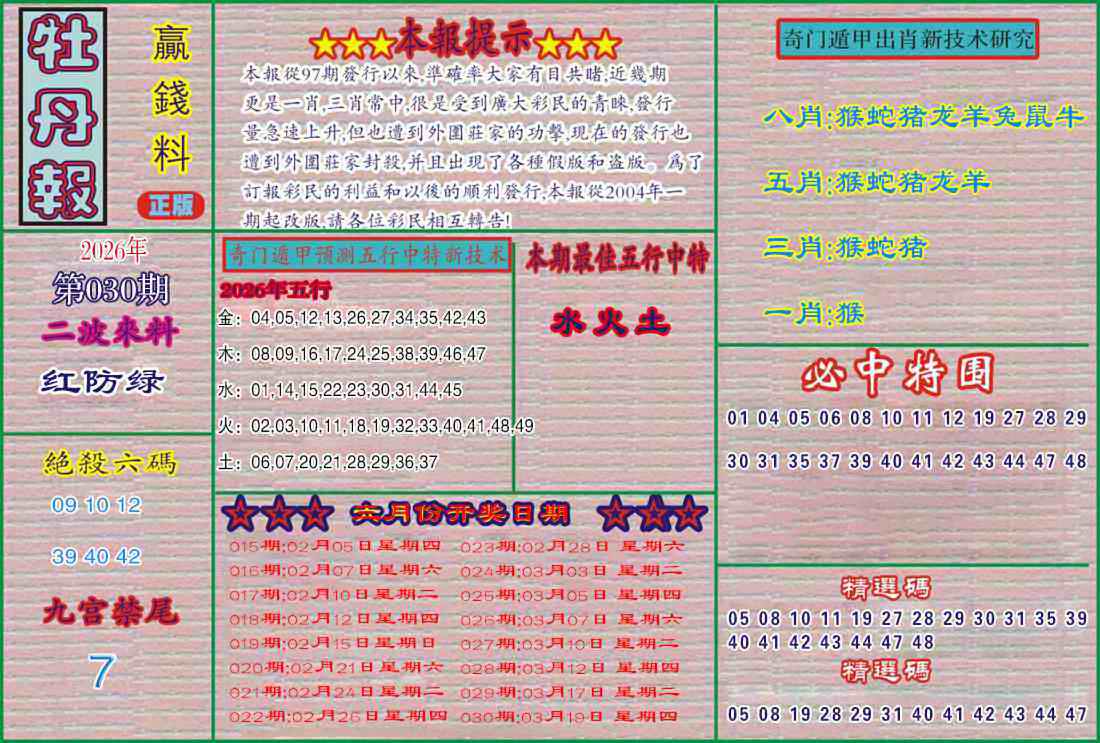 牡丹報
贏錢料
正版
★★★本報提示★★★
本報從97期發行以來,準確率大家有目共睹,近幾期
更是一肖,三肖常中,很是受到廣大彩民的青睞,發行
量急速上升,但也遭到外圍莊家的功擊,現在的發行也
遭到外圍莊家封殺,并且出現了各種假版和盗版。爲了
訂報彩民的利益和以後的順利發行,本報從2004年一
期起改版,請各位彩民相互轉告!
奇门遁甲出肖新技术研究
八肖:猴蛇猪龙羊兔鼠牛
五肖:猴蛇猪龙羊
三肖:猴蛇猪
一肖:猴
2026年
第030期
二波來料
红防绿
奇门遁甲预测五行中特新技术
2026年五行
金：04,05,12,13,26,27,34,35,42,43
木：08,09,16,17,24,25,38,39,46,47
水：01,14,15,22,23,30,31,44,45
火：02,03,10,11,18,19,32,33,40,41,48,49
土：06,07,20,21,28,29,36,37
本期最佳五行中特
水火土
必中特围
01 04 05 06 08 10 11 12 19 27 28 29
30 31 35 37 39 40 41 42 43 44 47 48
絕殺六碼
09 10 12
39 40 42
九宫禁尾
7
☆☆☆ 六月份开奖日期 ☆☆☆
015期:02月05日星期四 023期:02月28日 星期六
016期:02月07日星期六 024期:03月03日 星期二
017期:02月10日星期二 025期:03月05日 星期四
018期:02月12日星期四 026期:03月07日 星期六
019期:02月15日星期日 027期:03月10日 星期二
020期:02月21日星期六 028期:03月12日 星期四
021期:02月24日星期二 029期:03月17日 星期二
022期:02月26日星期四 030期:03月19日 星期四
精選碼
05 08 10 11 19 27 28 29 30 31 35 39
40 41 42 43 44 47 48
精選碼
05 08 19 28 29 31 40 41 42 43 44 47